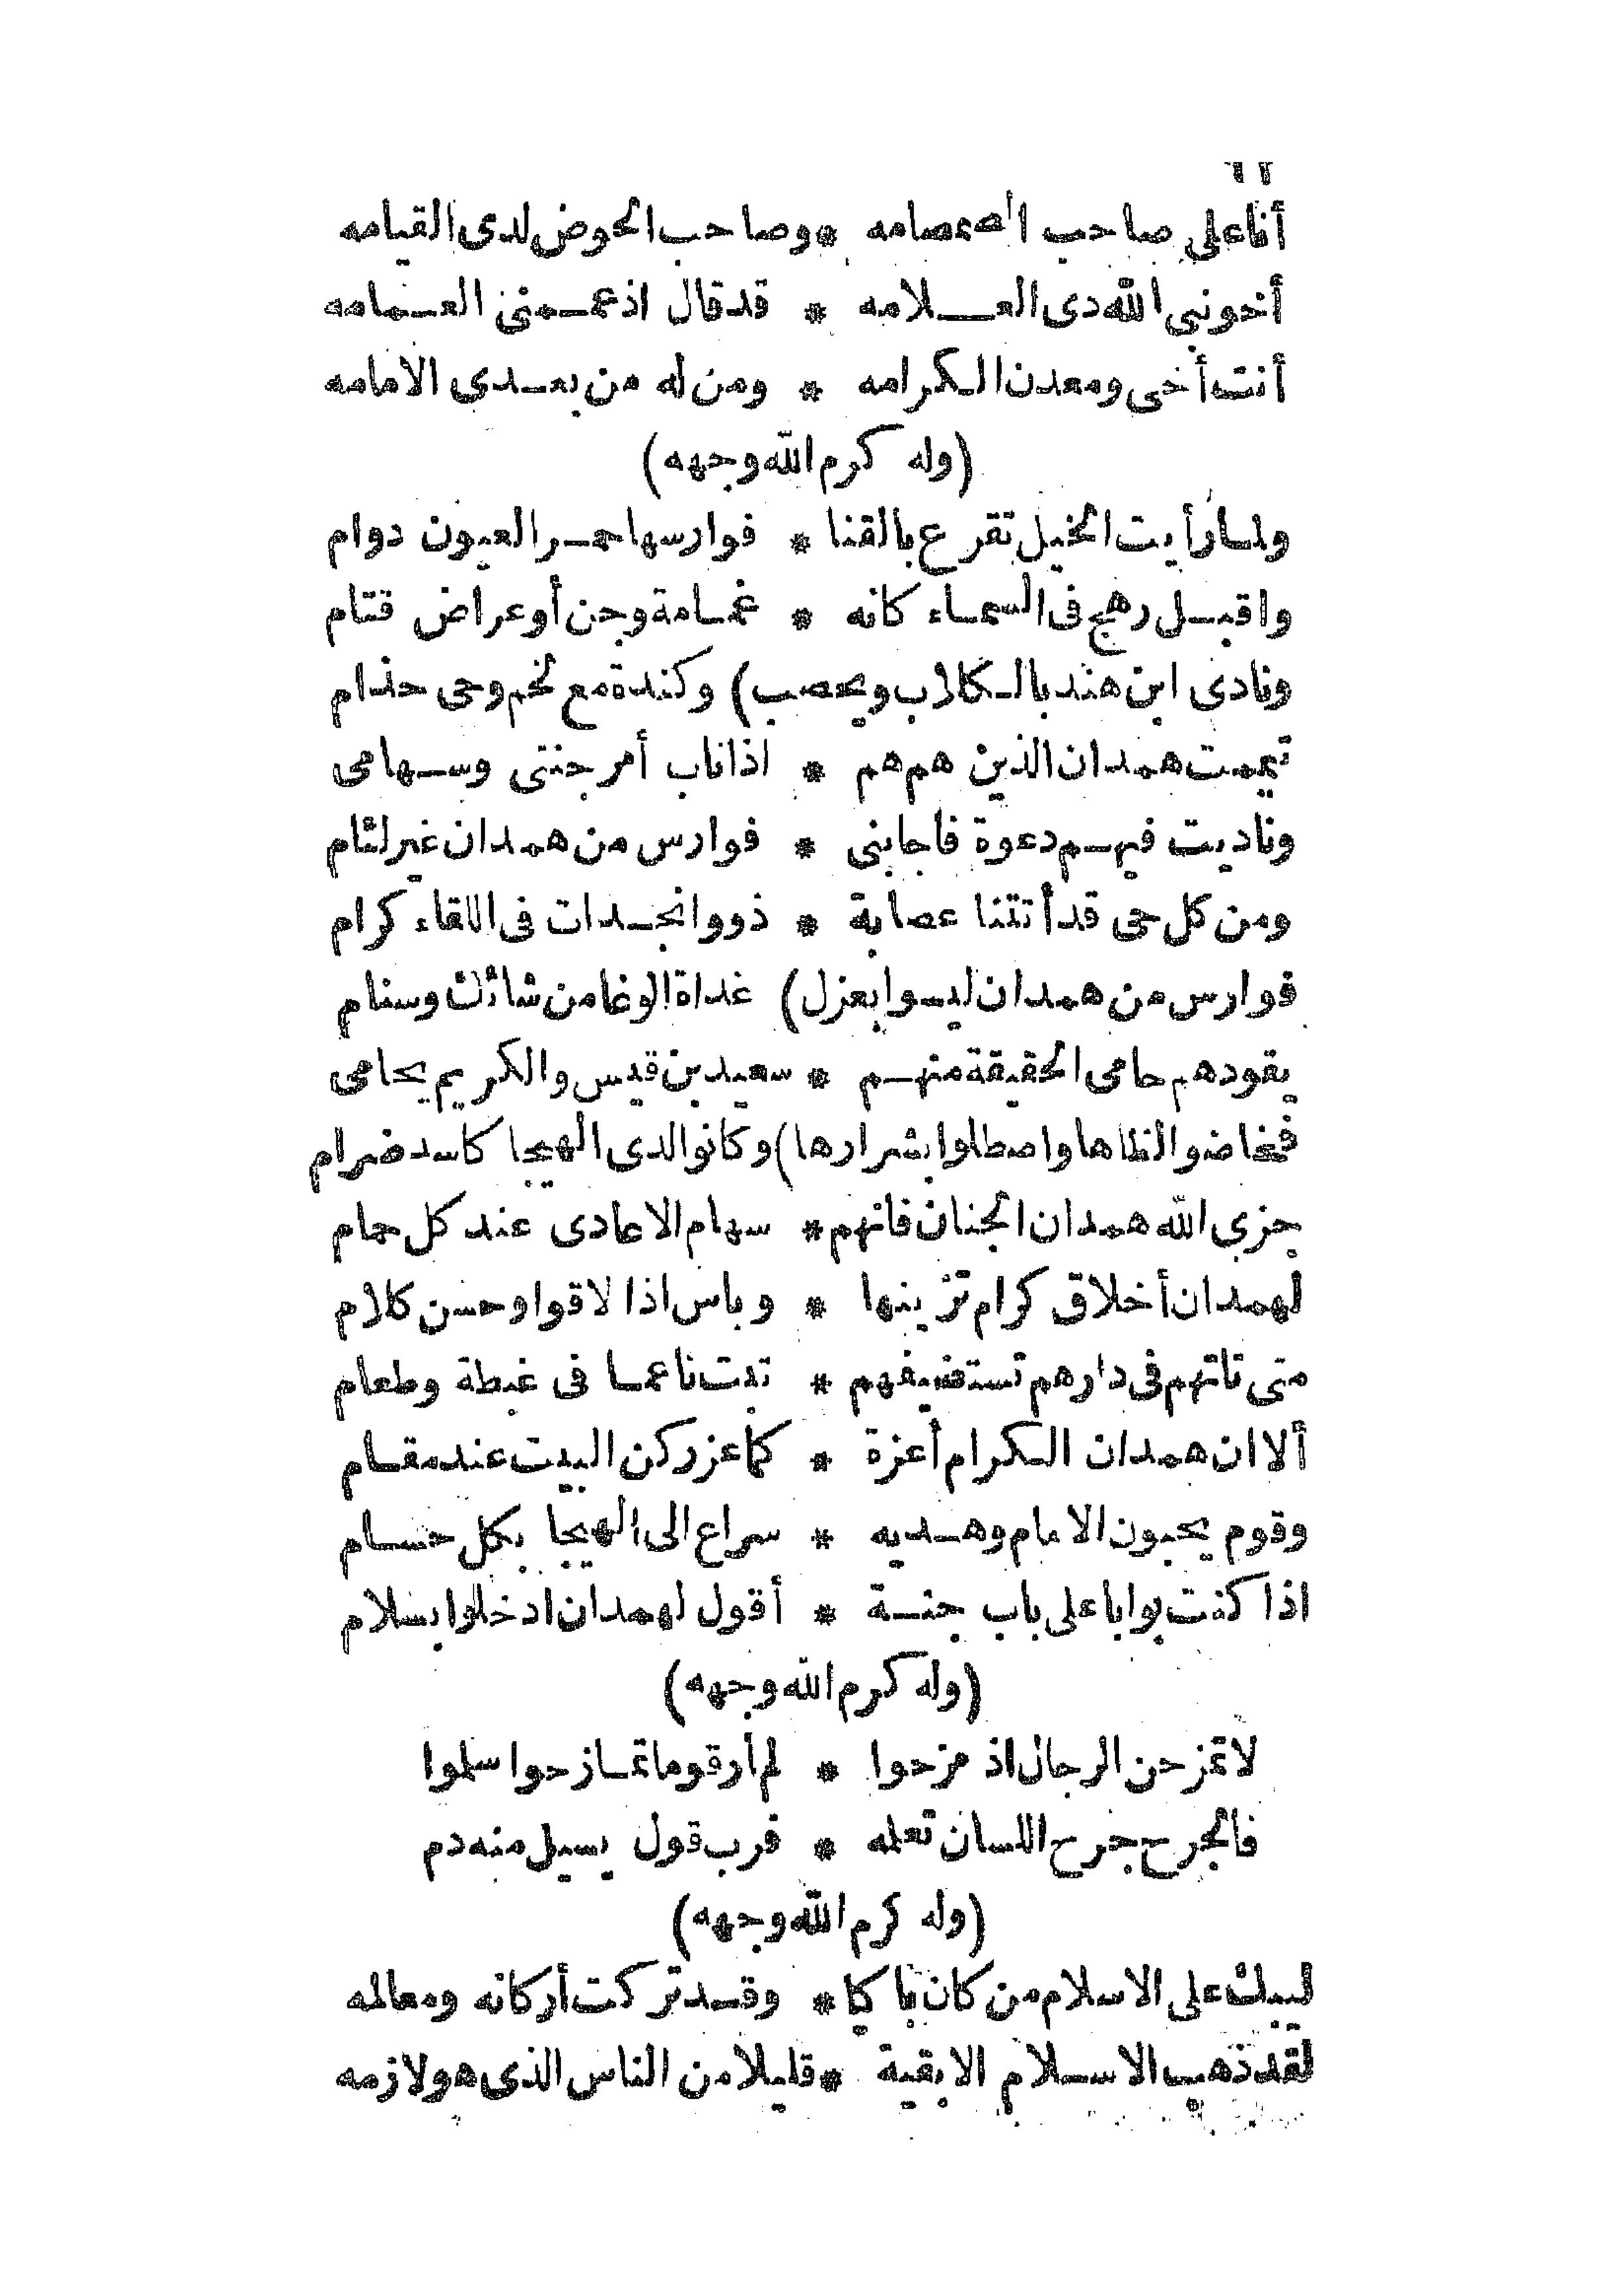 أنا على صاحب الصمصامه * وصاحب الحوض لدى القيامه
أخو نبي الله ذى العــلامه * قد قال اذ عمــمنى العــمامه
أنت أخى ومعدن الكرامه * ومن له من بعــدى الامامه
(وله كرم الله وجهه)
ولما رأيت الخيل تقرع بالقنا * فوارسها حمر العيون دوام
واقبل رهج فى السماء كانه * غمامة وجن أو عراض قتام
ونادى ابن هند بالكلاب ويحصب) وكندة مع لخم وحى جذام
تيممت همدان الذين هم هم * اذا ناب أمر جنتى وسهامى
وناديت فيهم دعوة فاجابنى * فوارس من همدان غير لئام
ومن كل حى قد أتتنا عصابة * ذو وانجدات فى اللقاء كرام
فوارس من همدان ليسوا بعزل) غداة الوغا من شائك وسنام
يقودهم حامى الحقيقة منهم * سعيد بن قيس والكريم يحامى
فخاضوا لظاها واصطلوا بشرارها) وكانوا لدى الهيجا كاسد ضرام
جزى الله همدان الجنان فانهم * سهام الاعادى عند كل حمام
لهمدان أخلاق كرام تزينها * وباس اذا لاقوا وحسن كلام
متى تاتهم فى دارهم تستضيفهم * تبت ناعما فى غبطة وطعام
ألا ان همدان الكرام أعزة * كما عز ركن البيت عند مقام
وقوم يحبون الامام وهديه * سراع الى الهيجا بكل حسام
اذا كنت بوابا على باب جنة * أقول لهمدان ادخلوا بسلام
(وله كرم الله وجهه)
لا تمزحن الرجال اذ مزحوا * لم أر قوما تمازحوا سلموا
فالجرح جرح اللسان تعلمه * فرب قول يسيل منه دم
(وله كرم الله وجهه)
ليبك على الاسلام من كان باكيا * وقد تركت أركانه ومعالمه
لقد ذهب الاسلام الا بقية * قليلا من الناس الذى هو لازمه